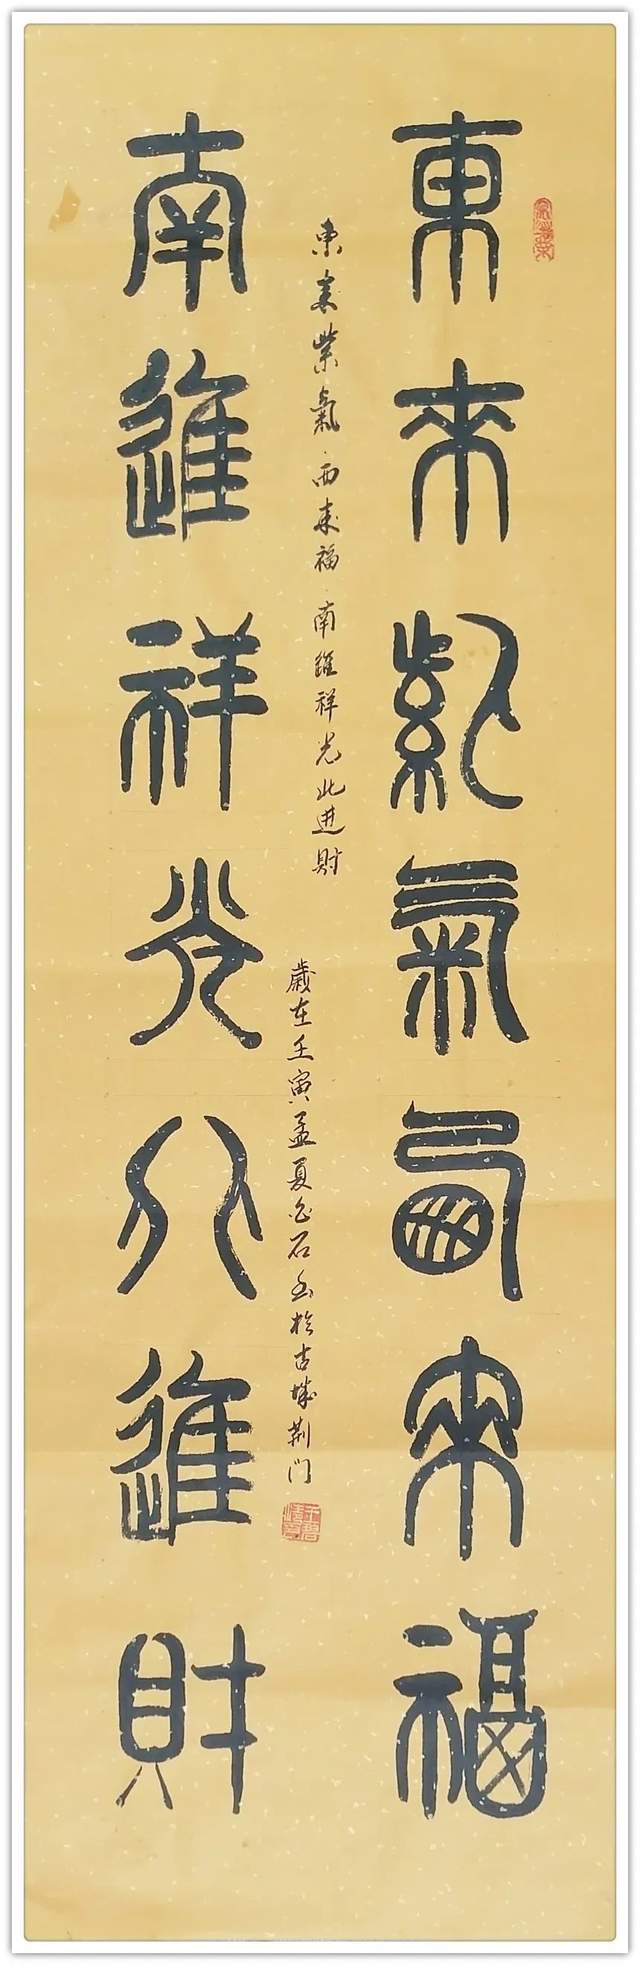 東來紫氣西來福
東來紫氣西來福南進祥光北進財
歲在壬寅孟夏白石書於古城荊门
南進祥光北進財